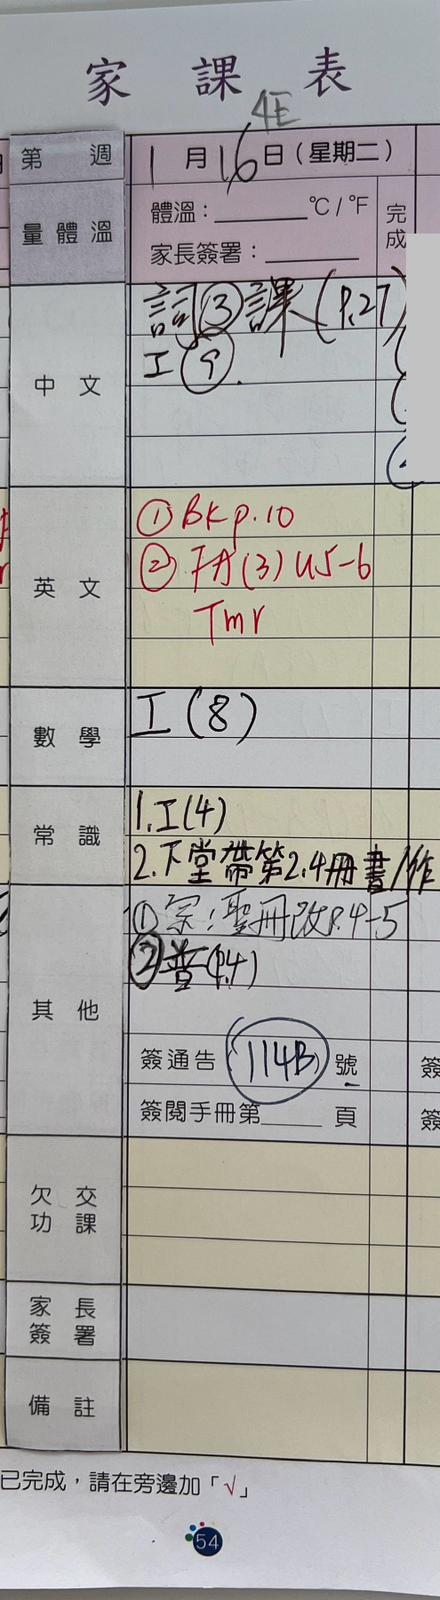 家課表
4E
第 週
1月16日(星期二)
量體溫
體溫：______℃/℉
家長簽署：______
完成
中文
詞③課(P.27)
工⑨.
英文
①BK p.10
②FA(3) U5-6
Tmr
數學
工(8)
常識
1.工(4)
2.下堂帶第2.4冊書/作
其他
①宗:聖冊改P.4-5
②普(P.4)
簽通告(114B)號
簽閱手冊第____頁
簽
簽
欠交功課
家長簽署
備註
已完成，請在旁邊加「√」
54